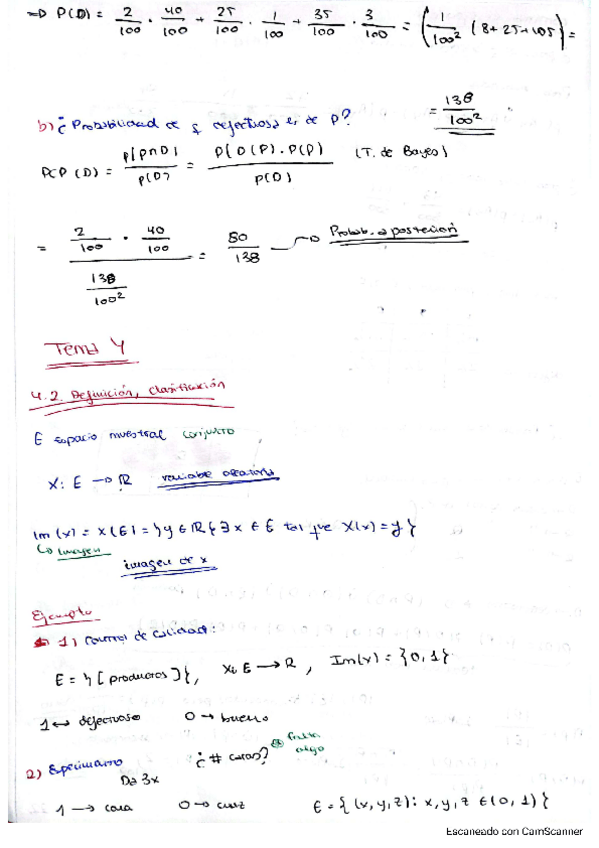 =D P(D) = 2/100 · 40/100 + 25/100 · 1/100 + 35/100 · 3/100 = (1/100² (8+25+105) =
= 138/100²
b) ¿Probabilidad de q defectuosa er de P?
P(P(D) = P(P∩D)/P(D) = P(D(P).P(P)/P(D) (T. de Bayes)
= 2/100 · 40/100 / 138/100² = 80/138 → Probab. a posteriori
Tema 4
4.2. Definición, clasificación
E espacio muestral conjunto
X: E → R variable aleatoria
Im(x) = X(E) = {y ∈ R { ∃ x ∈ E tal que X(x) = y}
↳ Imagen
imagen de x
Ejemplo
1) Control de calidad:
E = {[productos]}, X: E → R, Im(x) = {0,1}
1 ↔ defectuoso 0 → bueno
2) Experimento ¿# caras? falta algo
Da 3x
1 → cara 0 → cruz E = {(x,y,z): x,y,z ∈ (0,1)}
Escaneado con CamScanner